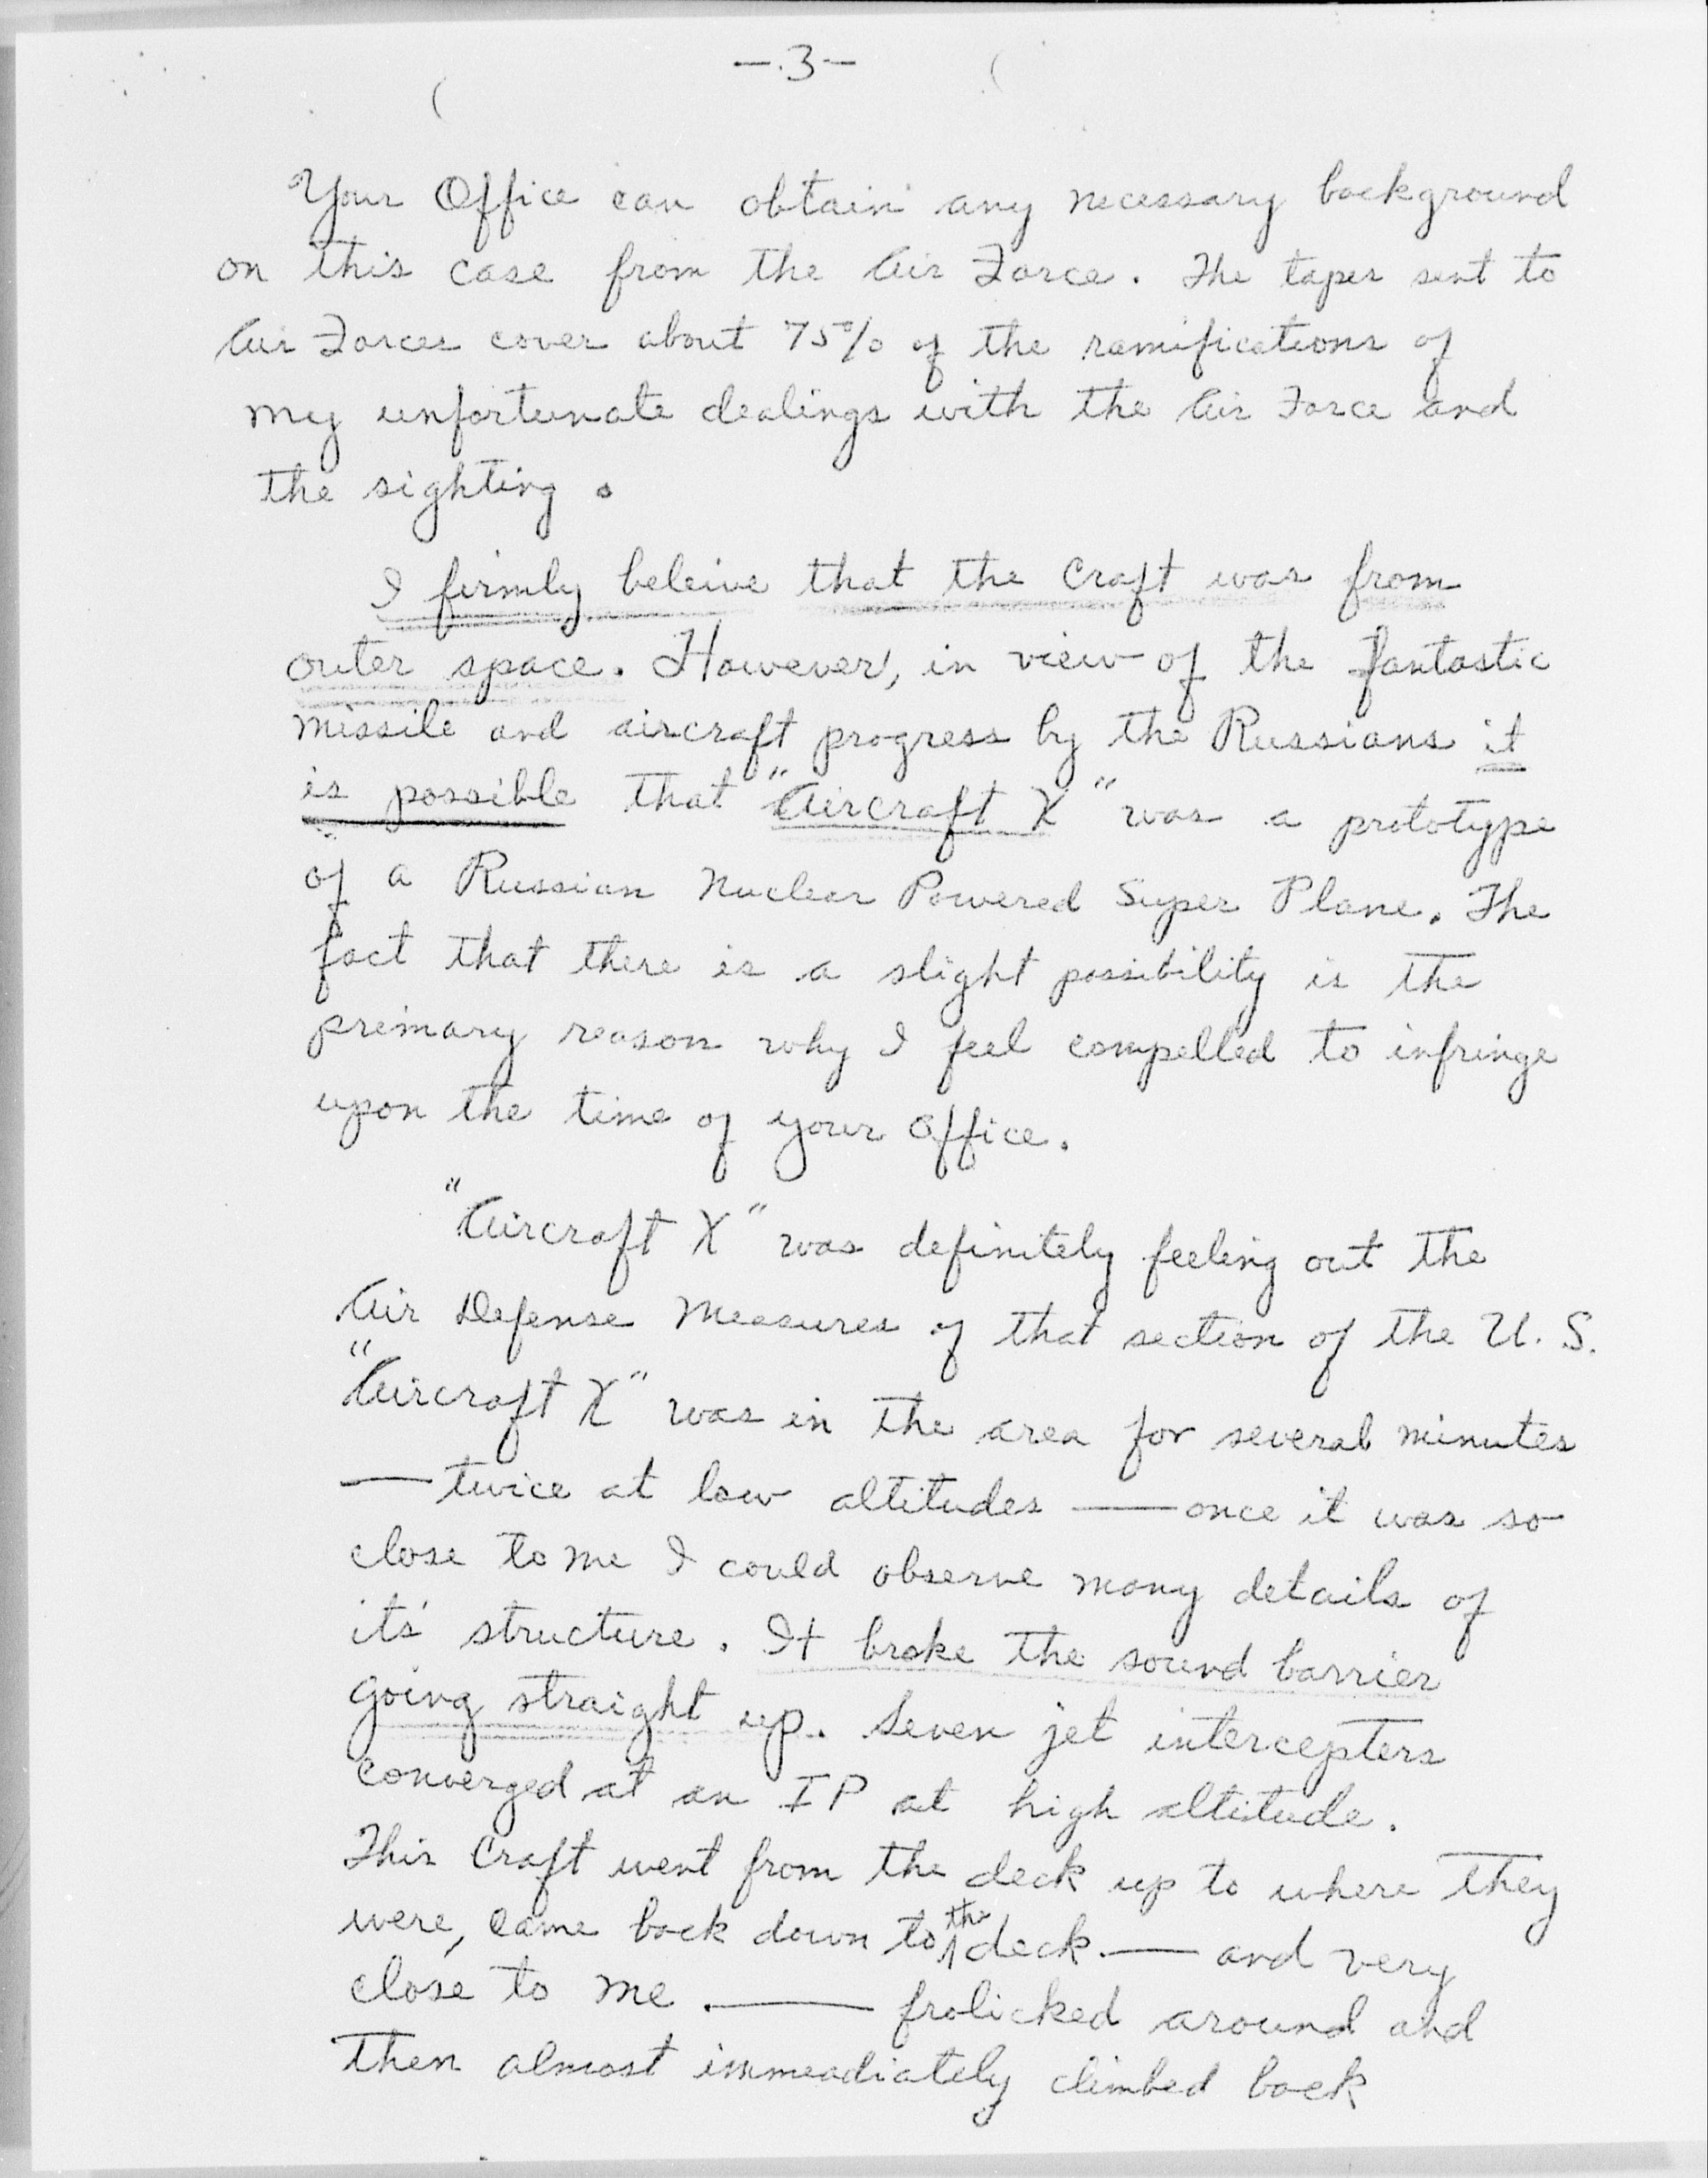 - 3 -
Your Office can obtain any necessary background
on this case from the Air Force. The tapes sent to
Air Forces cover about 75% of the ramifications of
my unfortunate dealings with the Air Force and
the sighting.
I firmly beleive that the Craft was from
outer space. However, in view of the fantastic
missile and aircraft progress by the Russians it
is possible that "Aircraft X" was a prototype
of a Russian Nuclear Powered Super Plane. The
fact that there is a slight possibility is the
primary reason why I feel compelled to infringe
upon the time of your Office.
"Aircraft X" was definitely feeling out the
Air Defense Measures of that section of the U. S.
"Aircraft X" was in the area for several minutes
— twice at low altitudes — once it was so
close to me I could observe many details of
its' structure. It broke the sound barrier
going straight up. Seven jet intercepters
converged at an IP at high altitude.
This Craft went from the deck up to where they
were, came back down to the deck — and very
close to me. — frolicked around and
then almost immeadiately climbed back